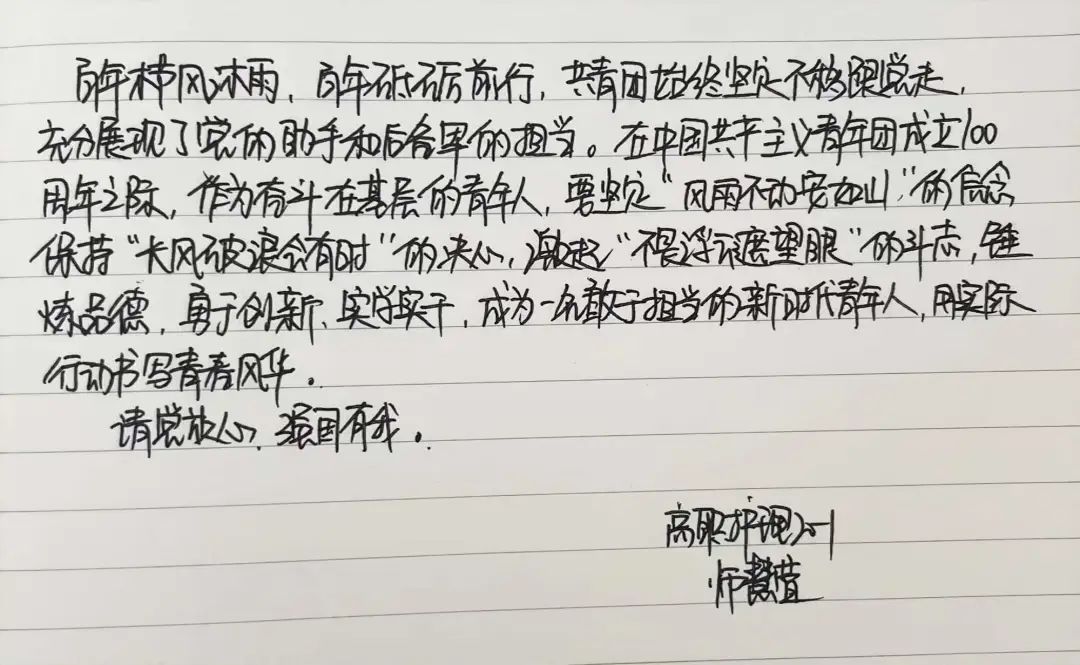 百年栉风沐雨，百年砥砺前行，共青团始终坚定不移跟党走，
充分展现了党的助手和后备军的担当。在中国共产主义青年团成立100
周年之际，作为奋斗在基层的青年人，要坚定“风雨不动安如山”的信念，
保持“长风破浪会有时”的决心，激起“不畏浮云遮望眼”的斗志，锤
炼品德，勇于创新、实学实干，成为一名敢于担当的新时代青年人，用实际
行动书写青春风华。
请党放心，强国有我。
高职护理20-1
师慧萱